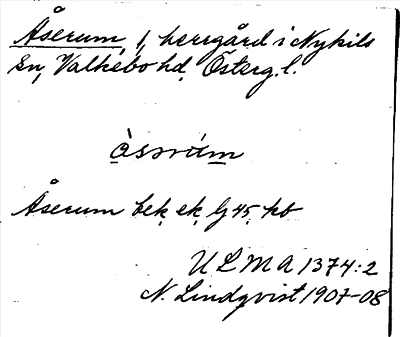 Åserum, 1, herrgård i Nykils
sn, Valkebo hd, Österg. l.
òsərúm
Åserum bek, ek, lj 45, kb
ULMA 1374:2
N. Lindqvist 1907-08